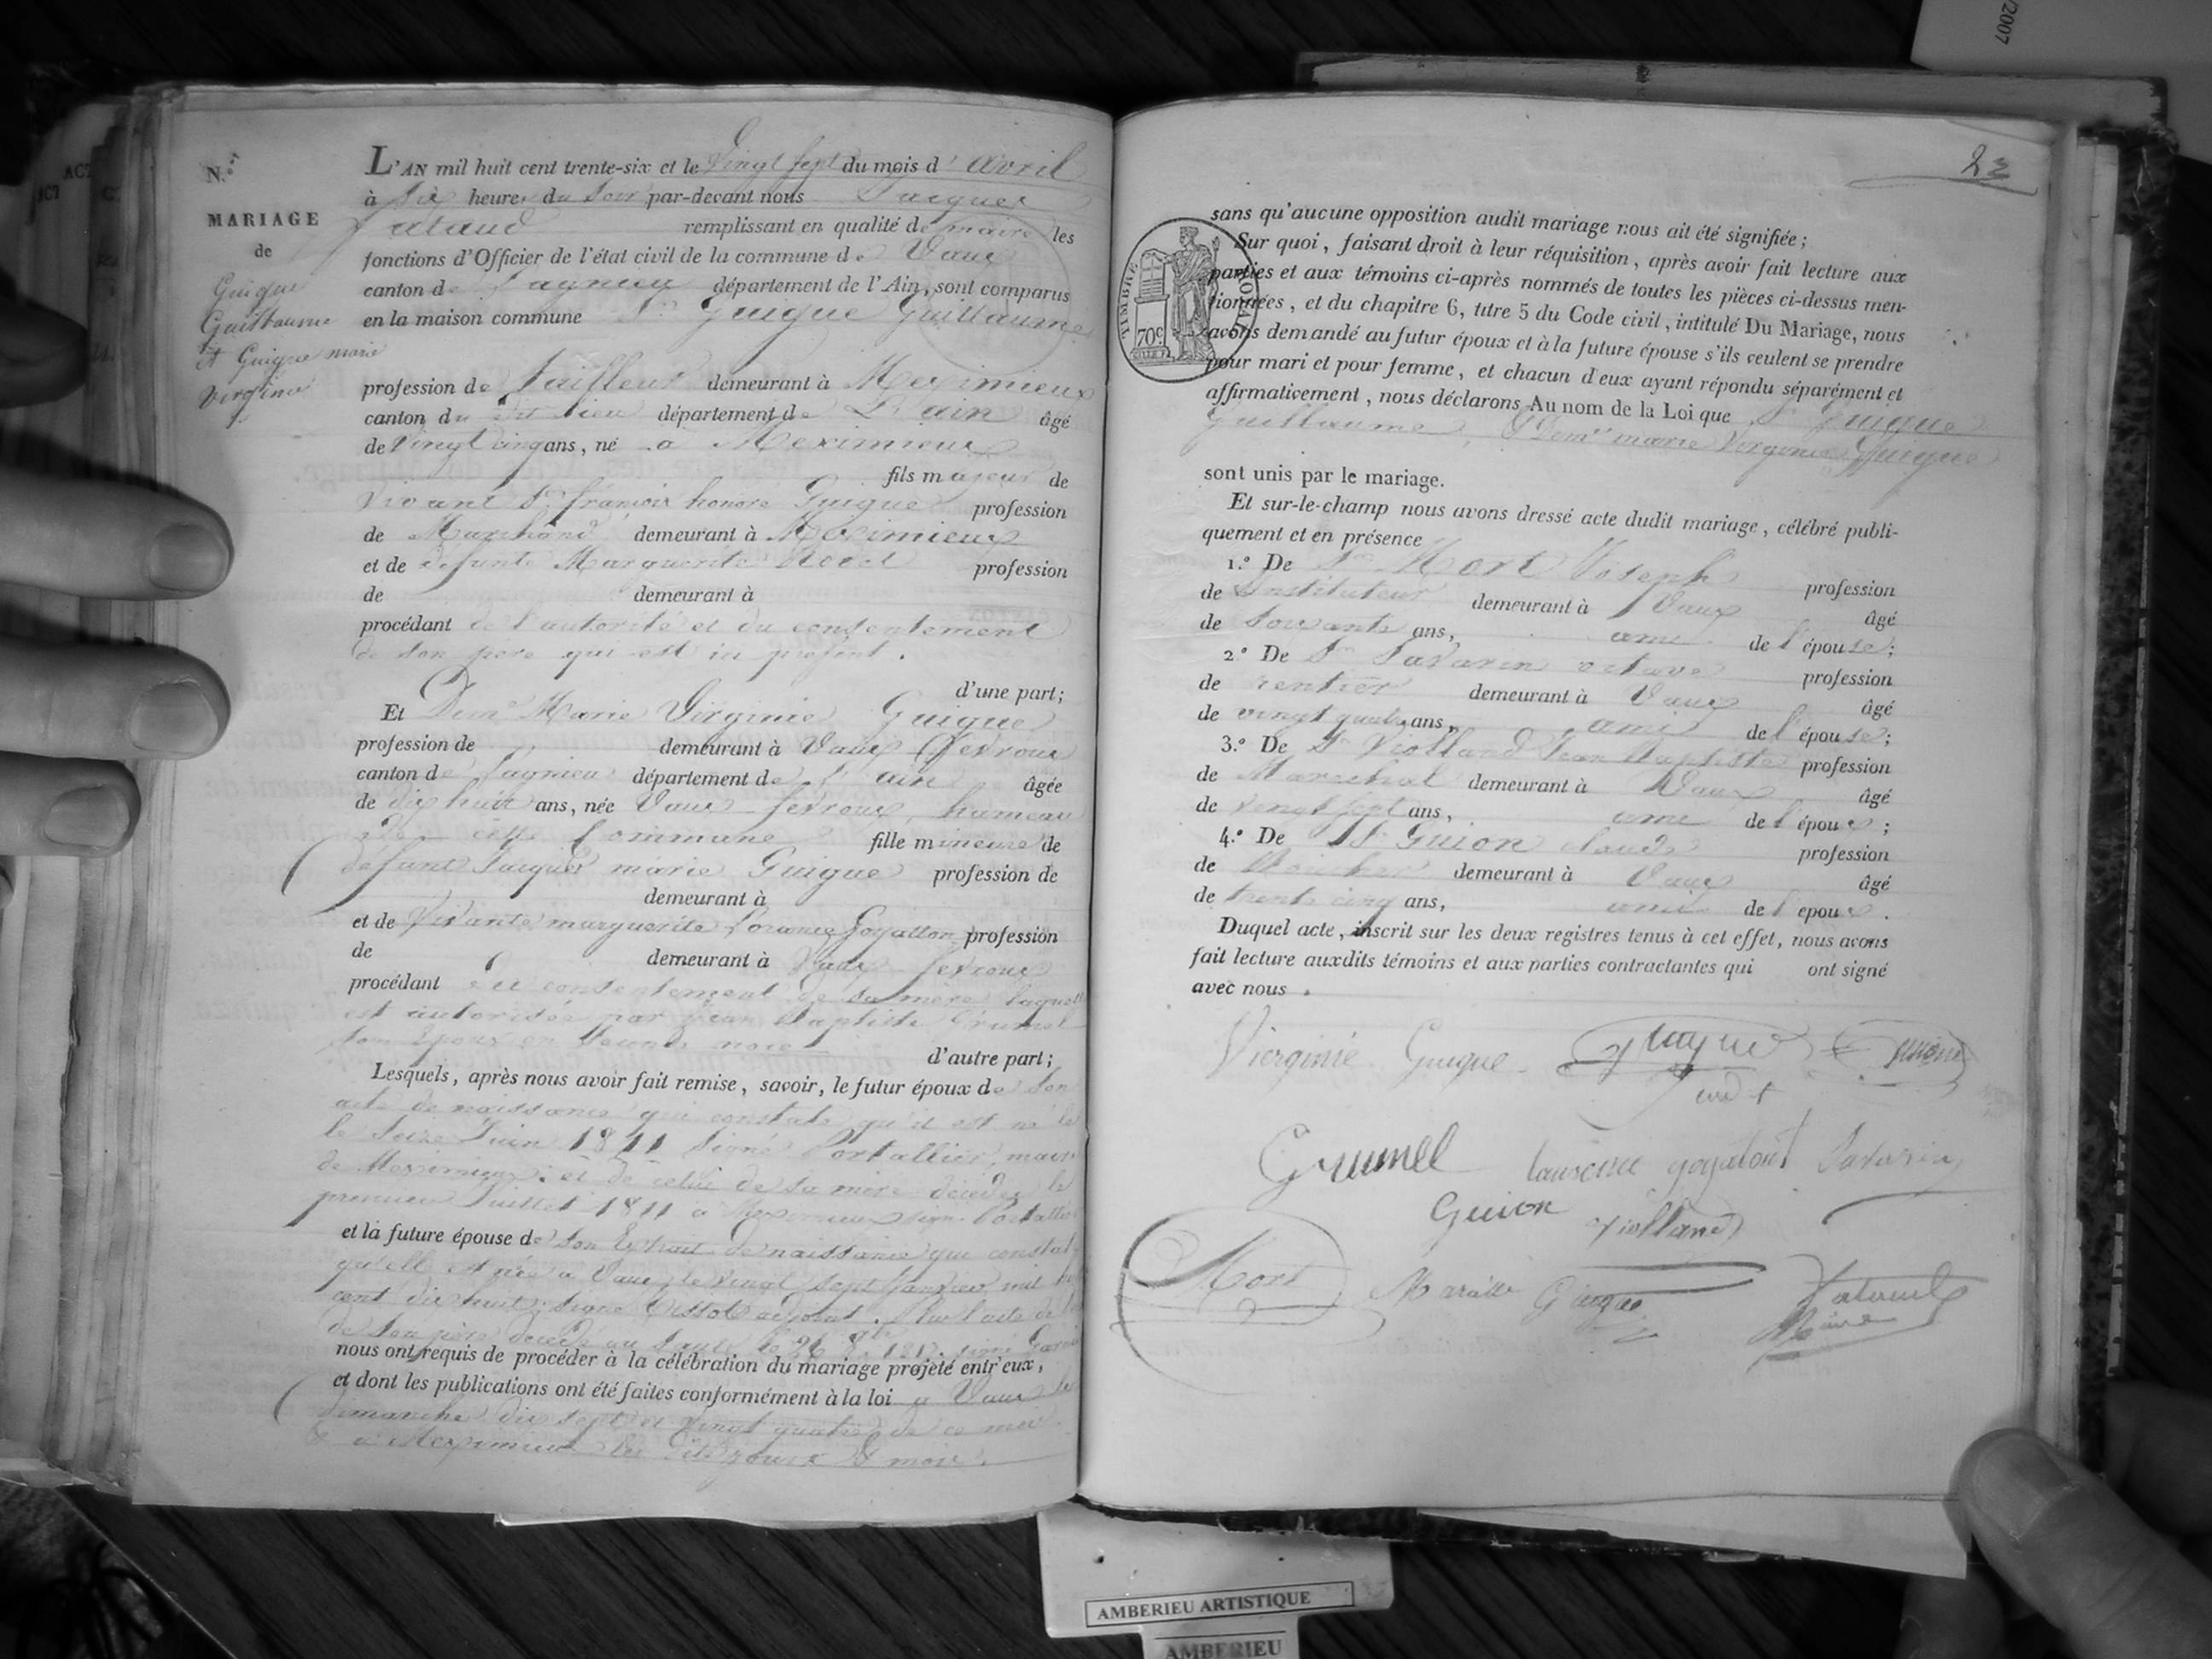 N.°
MARIAGE
de
Guigue
Guillaume
et Guigue marie
virginie
L'AN mil huit cent trente-six et le Vingt sept du mois d' avril
à six heures du soir par-devant nous Jacques
remplissant en qualité de maire les
fonctions d'Officier de l'état civil de la commune de Vaux
canton de Lagnieu département de l'Ain, sont comparus
en la maison commune Sr Guigue Guillaume
profession de tailleur demeurant à Meximieux
canton du dit lieu département de L'ain âgé
de Vingt cinq ans, né à Meximieux
fils majeur de
vivant Sr françois honoré Guigue profession
de Marchand demeurant à Meximieux
et de défunte Marguerite profession
de demeurant à
procédant de l'autorité et du consentement
de son père qui est ici présent.
d'une part;
Et Demlle Marie Virginie Guigue
profession de demeurant à Vaux fevroux
canton de Lagnieu département de l'ain âgée
de dix huit ans, née Vaux fevroux, hameau
de cette Commune fille mineure de
defunt Jacques marie Guigue profession de
demeurant à
et de Vivante marguerite Lorance Goyatton profession
de demeurant à Vaux fevroux
procédant du consentement de sa mère laquelle
est autorisée par jean Baptiste Grumel
son époux en seconde noce
d'autre part;
Lesquels, après nous avoir fait remise, savoir, le futur époux de son
acte de naissance qui constate qu'il est né le
le seize Juin 1811 signé Portallier, maire
de Meximieux; et de celui de sa mère décédée le
premier Juillet 1811 a Meximieux signé Portallier
et la future épouse de son Extrait de naissance qui constate
qu'elle est née à Vaux, le vingt sept Janvier mil huit
cent dix huit; signé adjoint. Plus l'acte de
de son père décédé au le 26 8bre 1817. signé
nous ont requis de procéder à la célébration du mariage projeté entr'eux,
et dont les publications ont été faites conformément à la loi a Vaux les
dimanche dix sept et vingt quatre de ce mois
& a Meximieux les dits jours & mois.
23
TIMBRE ROYAL
70c.
sans qu'aucune opposition audit mariage nous ait été signifiée;
Sur quoi, faisant droit à leur réquisition, après avoir fait lecture aux
parties et aux témoins ci-après nommés de toutes les pièces ci-dessus men-
tionnées, et du chapitre 6, titre 5 du Code civil, intitulé Du Mariage, nous
avons demandé au futur époux et à la future épouse s'ils veulent se prendre
pour mari et pour femme, et chacun d'eux ayant répondu séparément et
affirmativement, nous déclarons Au nom de la Loi que Sr Guigue
Guillaume, & Demlle marie Virginie Guigue
sont unis par le mariage.
Et sur-le-champ nous avons dressé acte dudit mariage, célébré publi-
quement et en présence
1.° De Sr Mort Joseph profession
de Instituteur demeurant à Vaux âgé
de soixante ans, ami de l'épouse;
2.° De Sr Savarin octave profession
de rentier demeurant à Vaux âgé
de vingt quatre ans, ami de l'épouse;
3.° De Sr Violland Jean Baptiste profession
de Marechal demeurant à Vaux âgé
de vingt sept ans, ami de l'époux;
4.° De Sr Guion claude profession
de demeurant à Vaux âgé
de trente cinq ans, ami de l'epoux.
Duquel acte, inscrit sur les deux registres tenus à cet effet, nous avons
fait lecture auxdits témoins et aux parties contractantes qui ont signé
avec nous.
Vierginie Guigue Guigue
Grumel Laurence goyatout Savarin
Guion violland
Mort Guigue
Maire
AMBERIEU ARTISTIQUE
AMBERIEU
/2007